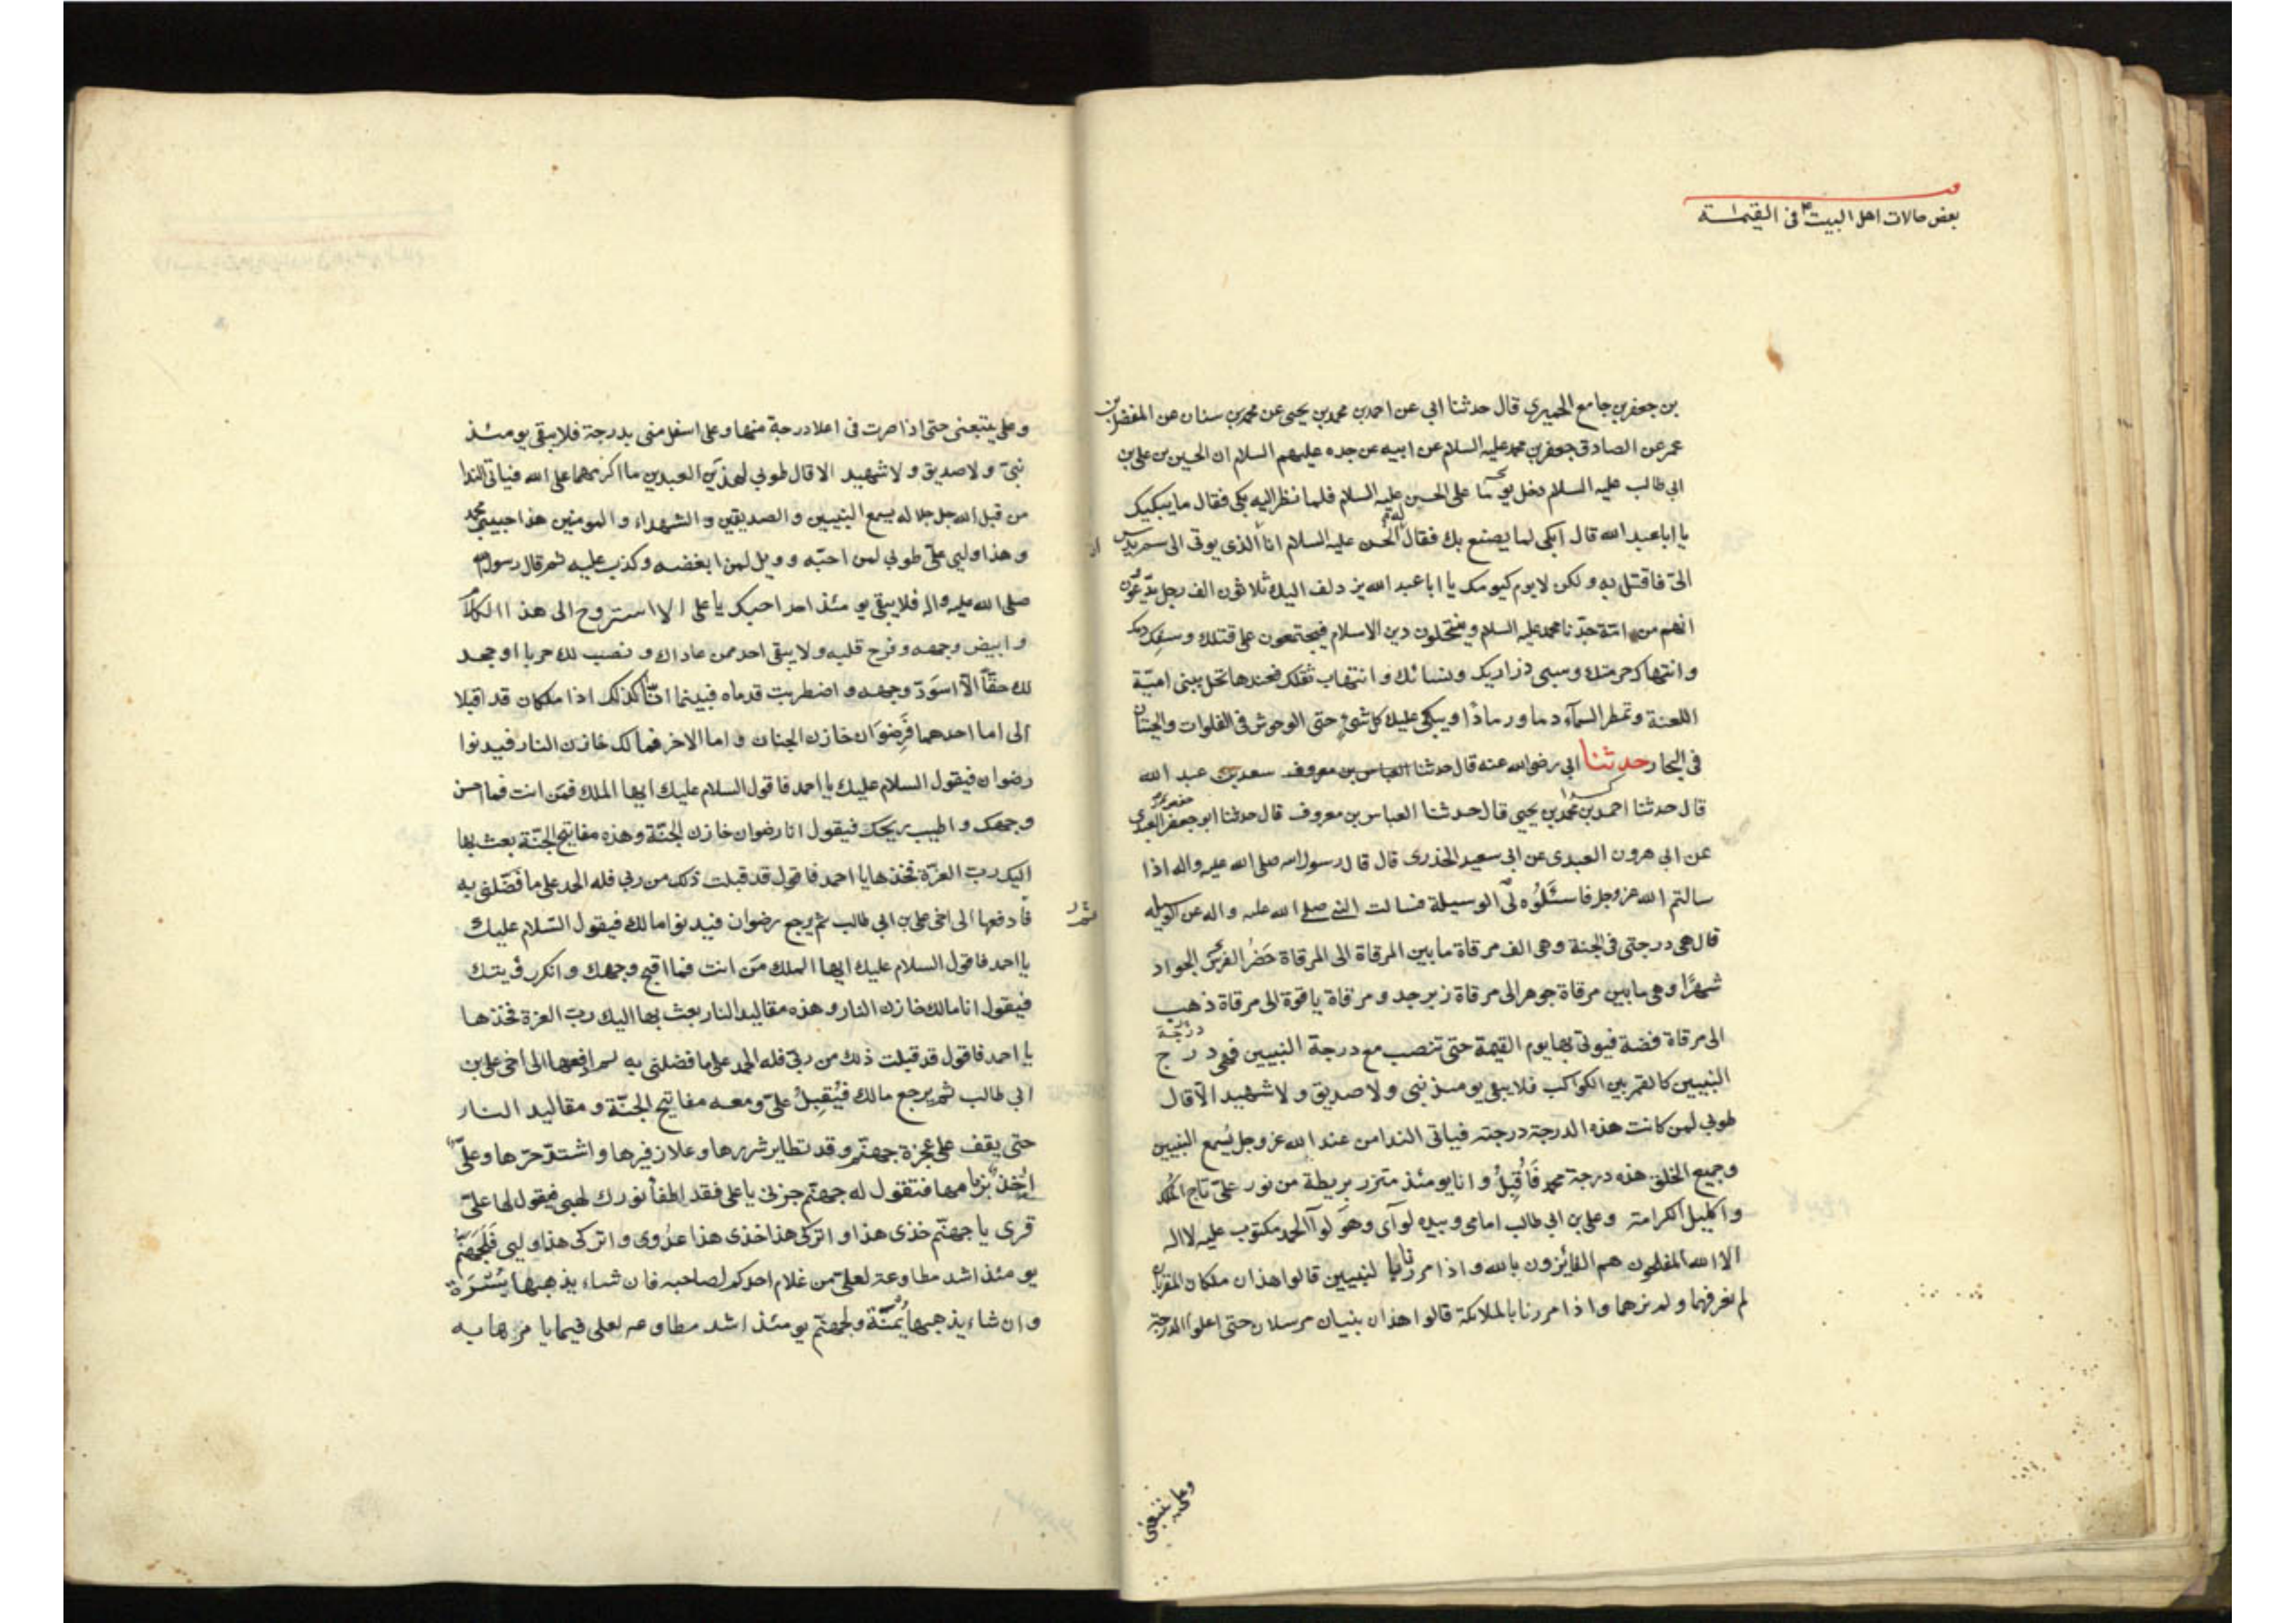 بعض حالات اهل البيت ع في القيمة
بن جعفر بن جامع الحميري قال حدثنا ابي عن احمد بن محمد بن يحيى عن محمد بن سنان عن المفضل بن
عمر عن الصادق جعفر بن محمد عليه السلام عن ابيه عن جده عليهم السلام ان الحسين بن علي بن
ابي طالب عليه السلام دخل يوما على الحسن عليه السلام فلما نظر اليه بكى فقال ما يبكيك
يا ابا عبد الله قال ابكي لما يصنع بك فقال له الحسن عليه السلام ان الذي يوتى الى سم يدس
الىّ فاقتل به و لكن لا يوم كيومك يا ابا عبد الله يزدلف اليك ثلاثون الف رجل يدّعون
انهم من امة جدّنا محمد عليه السلام و ينتحلون دين الاسلام فيجتمعون على قتلك وسفك دمك
و انتهاك حرمتك و سبى ذراريك و نسائك و انتهاب ثقلك فعندها تحل ببنى اميّة
اللعنة و تمطر السمآء دما و رمادًا و يبكي عليك كل شئ حتى الوحوش في الفلوات والحيتان
في البحار حدثنا ابي رضي الله عنه قال حدثنا العباس بن معروف سعد بن عبد الله
قال حدثنا احمد بن محمد بن يحيى قال حدثنا العباس بن معروف قال حدثنا ابو جعفر العبدي
عن ابي هرون العبدى عن ابي سعيد الخذرى قال قال رسول الله صلى الله عليه واله اذا
سالتم الله عز وجل فاسئلوه لى الوسيلة فسالت النبي صلى الله عليه واله عن الوسيلة
قال هي درجتى في الجنة و هي الف مرقاة ما بين المرقاة الى المرقاة حضر الفرس الجواد
شهرًا و هي ما بين مرقاة جوهر الى مرقاة زبرجد و مرقاة ياقوة الى مرقاة ذهب
الى مرقاة فضة فيوتى بها يوم القيمة حتى تنصب مع درجة النبيين فهي درج
درجة
النبيين كالقمر بين الكواكب فلا يبقى يومئذ نبي و لا صديق و لا شهيد الّا قال
طوبي لمن كانت هذه الدرجة درجته فياتي الندا من عند الله عز وجل يُسمع النبيين
و جميع الخلق هذه درجة محمد فَأُقبلُ و انا يومئذ متزر بريطة من نور علىّ تاج الملك
و اكليل الكرامة و علي بن ابي طالب امامي و بيده لوآى و هو لوآ الحمد مكتوب عليه لا اله
الا الله المفلحون هم الفائزون بالله و اذا مررنا بالنبيين قالوا هذان ملكان المقربان
لم نعرفهما و لم نرهما و اذا مررنا بالملائكة قالوا هذان نبيان مرسلان حتى اعلوا الدرجة
وعلي يتبعني
و علي يتبعنى حتى اذا صرت في اعلا درجة منها و على اسفل منى بدرجة فلا يبقي يومئذ
نبىّ و لا صديق و لا شهيد الا قال طوبي لهذين العبدين ما اكرمهما على الله فياتى الندا
من قبل الله جل جلاله يسمع النبيين و الصديقين و الشهداء و المومنين هذا حبيبي محمد
و هذا وليي علىّ طوبي لمن احبّه و ويل لمن ابغضه و كذب عليه ثم قال رسول الله
صلى الله عليه واله فلا يبقى يومئذ احد احبك يا على الا استروح الى هذا الكلام
و ابيض وجهه و فرح قلبه و لا يبقى احد ممن عاداك و نصب لك حربا او جحد
لك حقّا الّا اسودّ وجهه و اضطربت قدماه فبينما انا كذلك اذا ملكان قد اقبلا
الى اما احدهما فرضوان خازن الجنان و اما الاخر فمالك خازن النار فيدنوا
رضوان فيقول السلام عليك يا احمد فاقول السلام عليك ايها الملك فمن انت فما احسن
وجهك و اطيب ريحك فيقول انا رضوان خازن الجنّة و هذه مفاتيح الجنّة بعث بها
اليك ربّ العزّة فخذها يا احمد فاقول قد قبلت ذلك من ربي فله الحمد على ما فضّلنى به
فادفعها الى اخى على بن ابي طالب ثم يرجع رضوان فيدنوا مالك فيقول السّلام عليك
يا احمد فاقول السلام عليك ايها الملك من انت فما اقبح وجهك و انكر رؤيتك
فيقول انا مالك خازن النار و هذه مقاليد النار بعث بها اليك ربّ العزة فخذها
يا احمد فاقول قد قبلت ذلك من ربّى فله الحمد على ما فضلنى به ثم ادفعها الى اخى على بن
ابي طالب ثم يرجع مالك فيُقبِلُ علىّ و معه مفاتيح الجنّة و مقاليد النار
حتى يقف على عجزة جهنّم و قد تطاير شررها و علا زفيرها و اشتدّ حرّها و علىّ
اخذ بزمامها فتقول له جهنّم جزنى يا على فقد اطفأ نورك لهبى فيقول لها علىّ
قرى يا جهنّم خذى هذا و اتركى هذا خذى هذا عدوى و اتركى هذا وليي فلجهنّم
يومئذ اشد مطاوعة لعلىّ من غلام احدكم لصاحبه فان شاء يذهبها يسرة
و ان شاء يذهبها يمنة و لجهنّم يومئذ اشد مطاوعه لعلي فيما يا مرها به